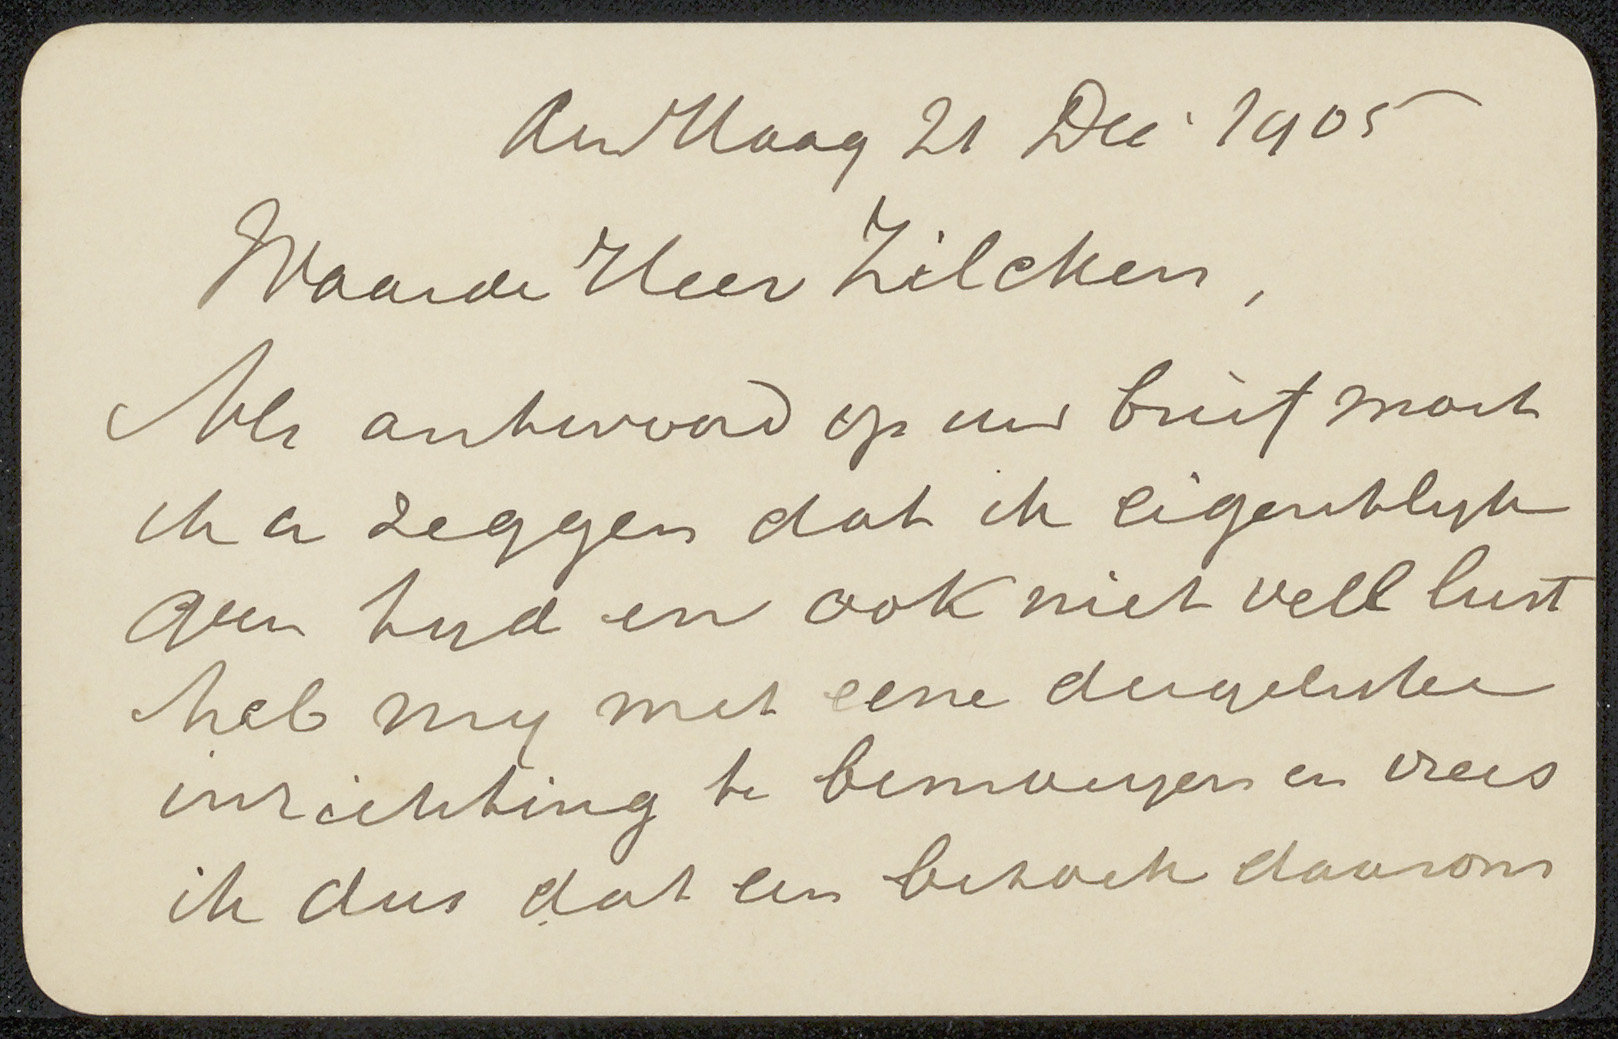 den Haag 21 Dec. 1905
Waarde Heer Zilcken,
Als antwoord op uw brief moet
ik u zeggen dat ik eigentlyk
geen tyd en ook niet veel lust
heb my met eene dergelyke
inrichting te bemoeyen en vrees
ik dus dat een bezoek daarom